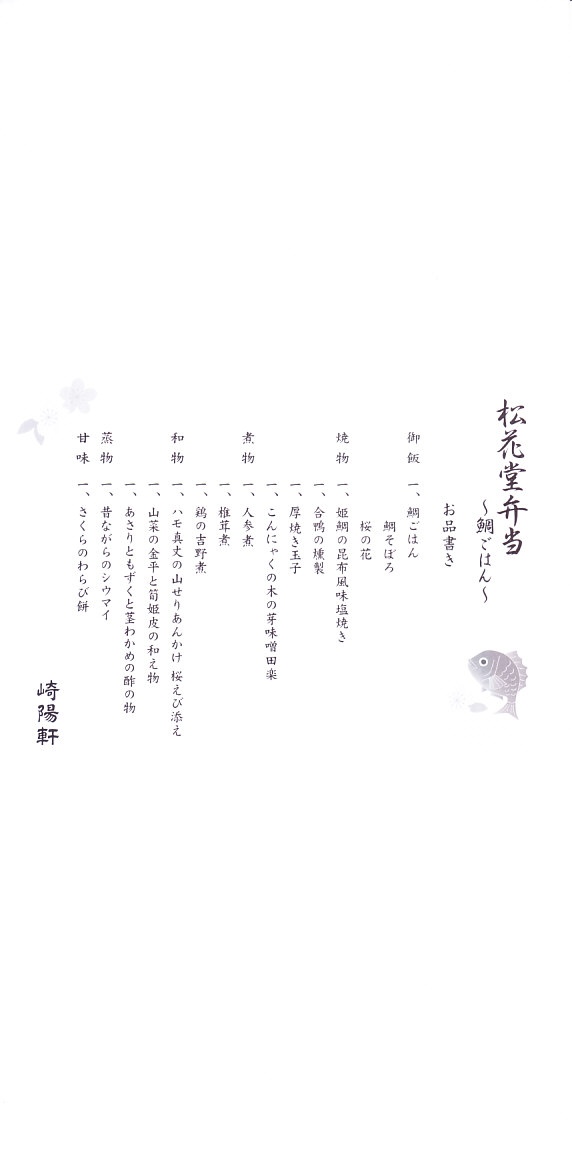 松花堂弁当
～鯛ごはん～
お品書き
御飯 一、鯛ごはん
鯛そぼろ
桜の花
焼物 一、姫鯛の昆布風味塩焼き
一、合鴨の燻製
一、厚焼き玉子
一、こんにゃくの木の芽味噌田楽
煮物 一、人参煮
一、椎茸煮
一、鶏の吉野煮
和物 一、ハモ真丈の山せりあんかけ 桜えび添え
一、山菜の金平と筍姫皮の和え物
一、あさりともずくと茎わかめの酢の物
蒸物 一、昔ながらのシウマイ
甘味 一、さくらのわらび餅
崎陽軒